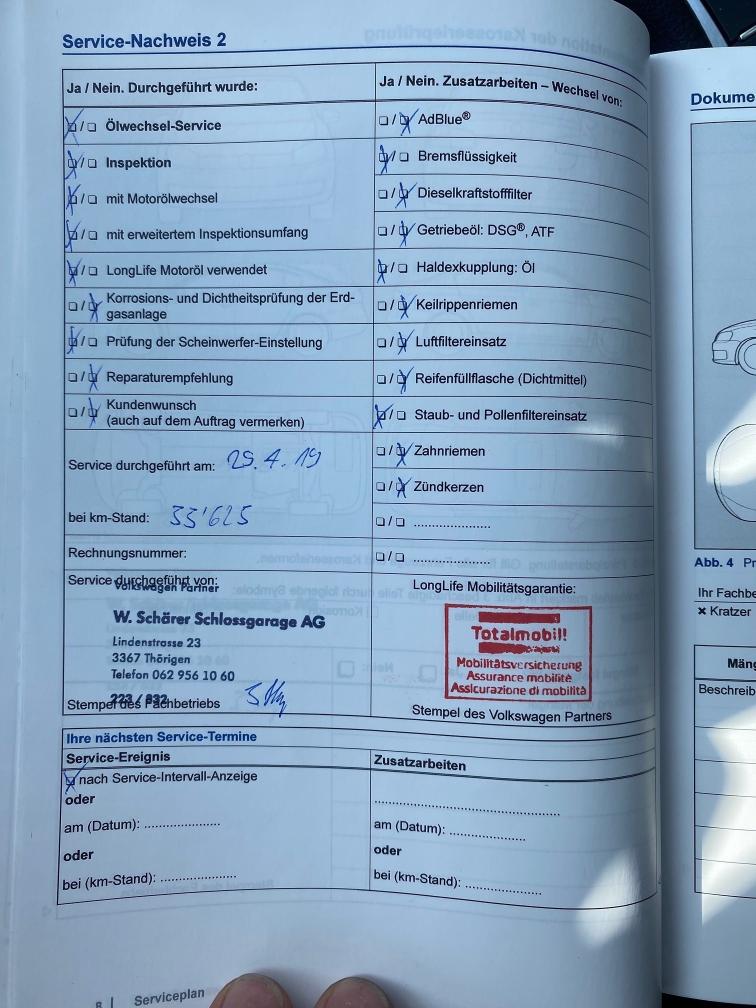 Service-Nachweis 2
Ja / Nein. Durchgeführt wurde:
☒/☐ Ölwechsel-Service
☒/☐ Inspektion
☒/☐ mit Motorölwechsel
☒/☐ mit erweitertem Inspektionsumfang
☒/☐ LongLife Motoröl verwendet
☐/☒ Korrosions- und Dichtheitsprüfung der Erd-
gasanlage
☒/☐ Prüfung der Scheinwerfer-Einstellung
☐/☒ Reparaturempfehlung
☐/☒ Kundenwunsch
(auch auf dem Auftrag vermerken)
Service durchgeführt am: 29.4.19
bei km-Stand: 33'625
Rechnungsnummer:
Service durchgeführt von:
Volkswagen Partner
W. Schärer Schlossgarage AG
Lindenstrasse 23
3367 Thörigen
Telefon 062 956 10 60
Stempel des Fachbetriebs
Ja / Nein. Zusatzarbeiten – Wechsel von:
☐/☒ AdBlue®
☒/☐ Bremsflüssigkeit
☐/☒ Dieselkraftstofffilter
☐/☒ Getriebeöl: DSG®, ATF
☒/☐ Haldexkupplung: Öl
☐/☒ Keilrippenriemen
☐/☒ Luftfiltereinsatz
☐/☒ Reifenfüllflasche (Dichtmittel)
☒/☐ Staub- und Pollenfiltereinsatz
☐/☒ Zahnriemen
☐/☒ Zündkerzen
☐/☐ .....................
☐/☐ .....................
LongLife Mobilitätsgarantie:
Totalmobil!
Mobilitätsversicherung
Assurance mobilité
Assicurazione di mobilità
Stempel des Volkswagen Partners
Ihre nächsten Service-Termine
Service-Ereignis
☒ nach Service-Intervall-Anzeige
oder
am (Datum): .....................
oder
bei (km-Stand): .....................
Zusatzarbeiten
.....................
am (Datum): .....................
oder
bei (km-Stand): .....................
8 | Serviceplan
Dokume
Abb. 4 Pr
Ihr Fachbe
× Kratzer
Mäng
Beschreib